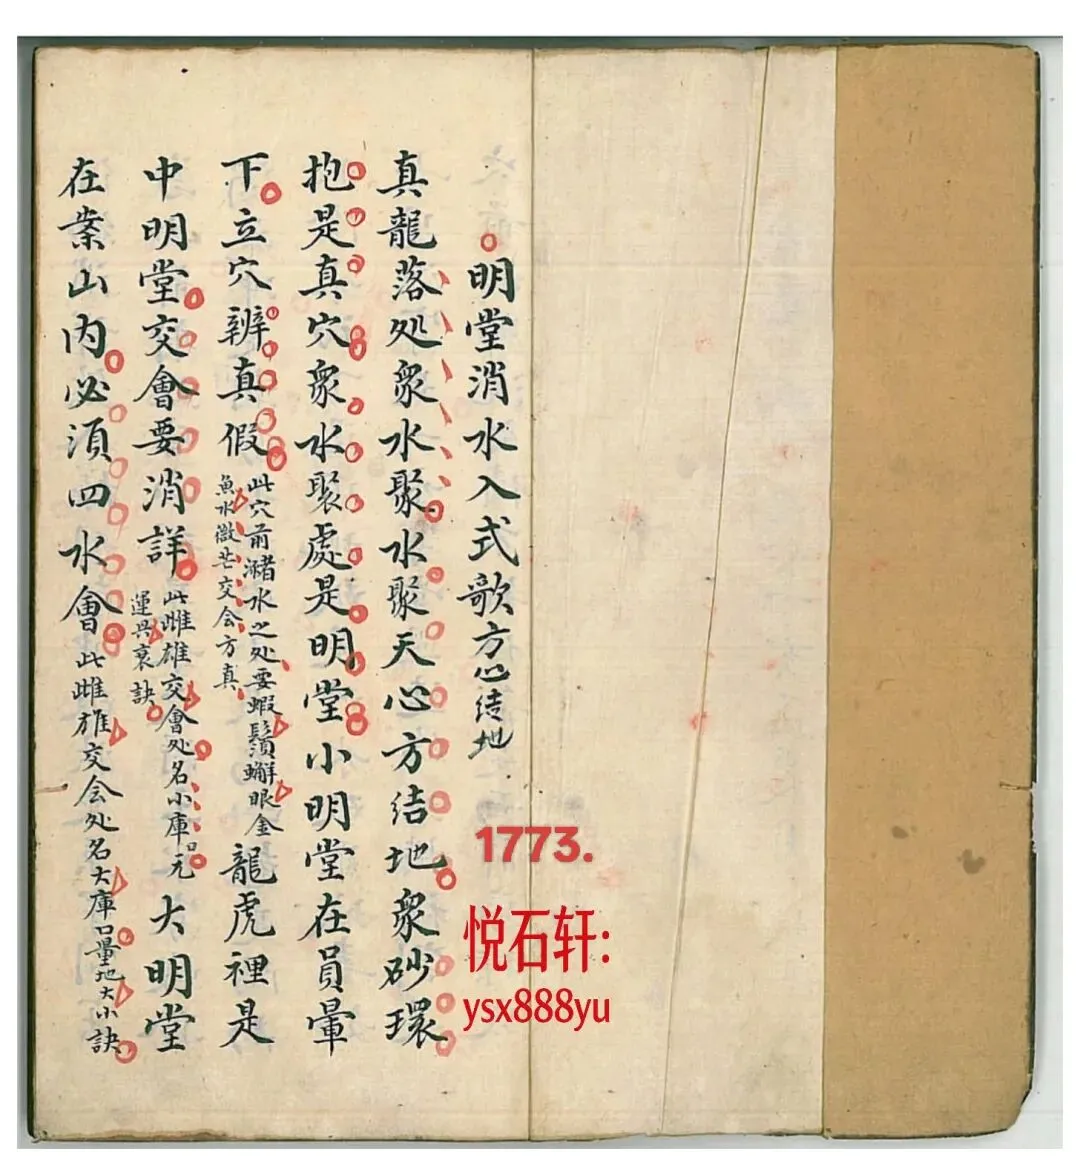 明堂消水入式歌方心结地
真龍落处衆水聚水聚天心方结地衆砂環
抱是真穴衆水聚處是明堂小明堂在員暈
下立穴辨真假此穴前瀦水之处要蝦鬚蠏眼金
魚水微茫交会方真龍虎裡是
中明堂交會要消詳此雌雄交會处名小庫口元
運興衰訣大明堂
在案山内必須四水會此雌雄交会处名大庫口量地大小訣
1773.
悦石轩:
ysx888yu